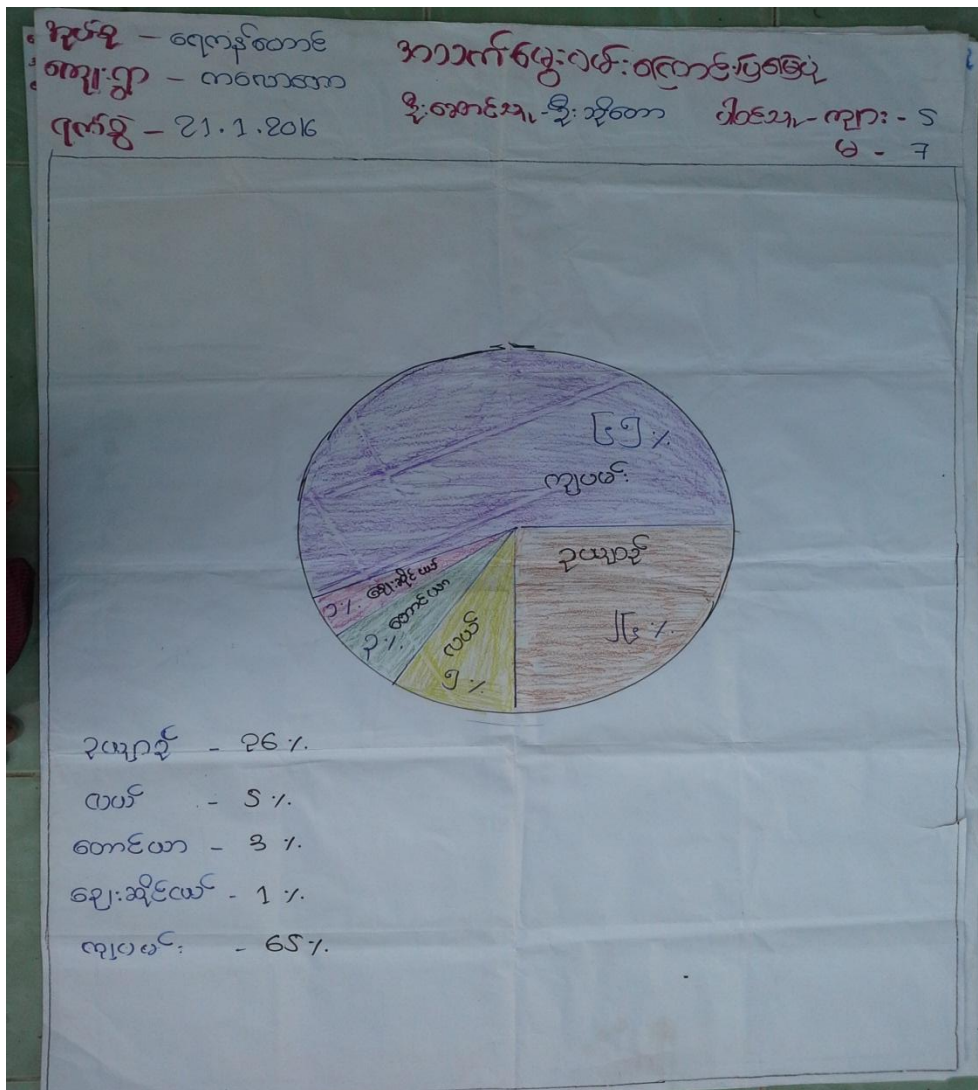 အုပ်စု - ရေကန်တောင်
ကျေးရွာ - ကလောတော
ရက်စွဲ - 21.1.2016
အသက်မွေးဝမ်းကြောင်းပြမြေပုံ
ဦးဆောင်သူ - ဦးသိုတော
ပါဝင်သူ - ကျား - 5
မ - 7
၆၅ %
ကျပမ်း
ဥယျာဉ်
၂၆ %
ဈေးဆိုင်ငယ်
၁ %
တောင်ယာ
၃ %
လယ်
၅ %
ဥယျာဉ် - 26 %
လယ် - 5 %
တောင်ယာ - 3 %
ဈေးဆိုင်ငယ် - 1 %
ကျပမ်း - 65 %